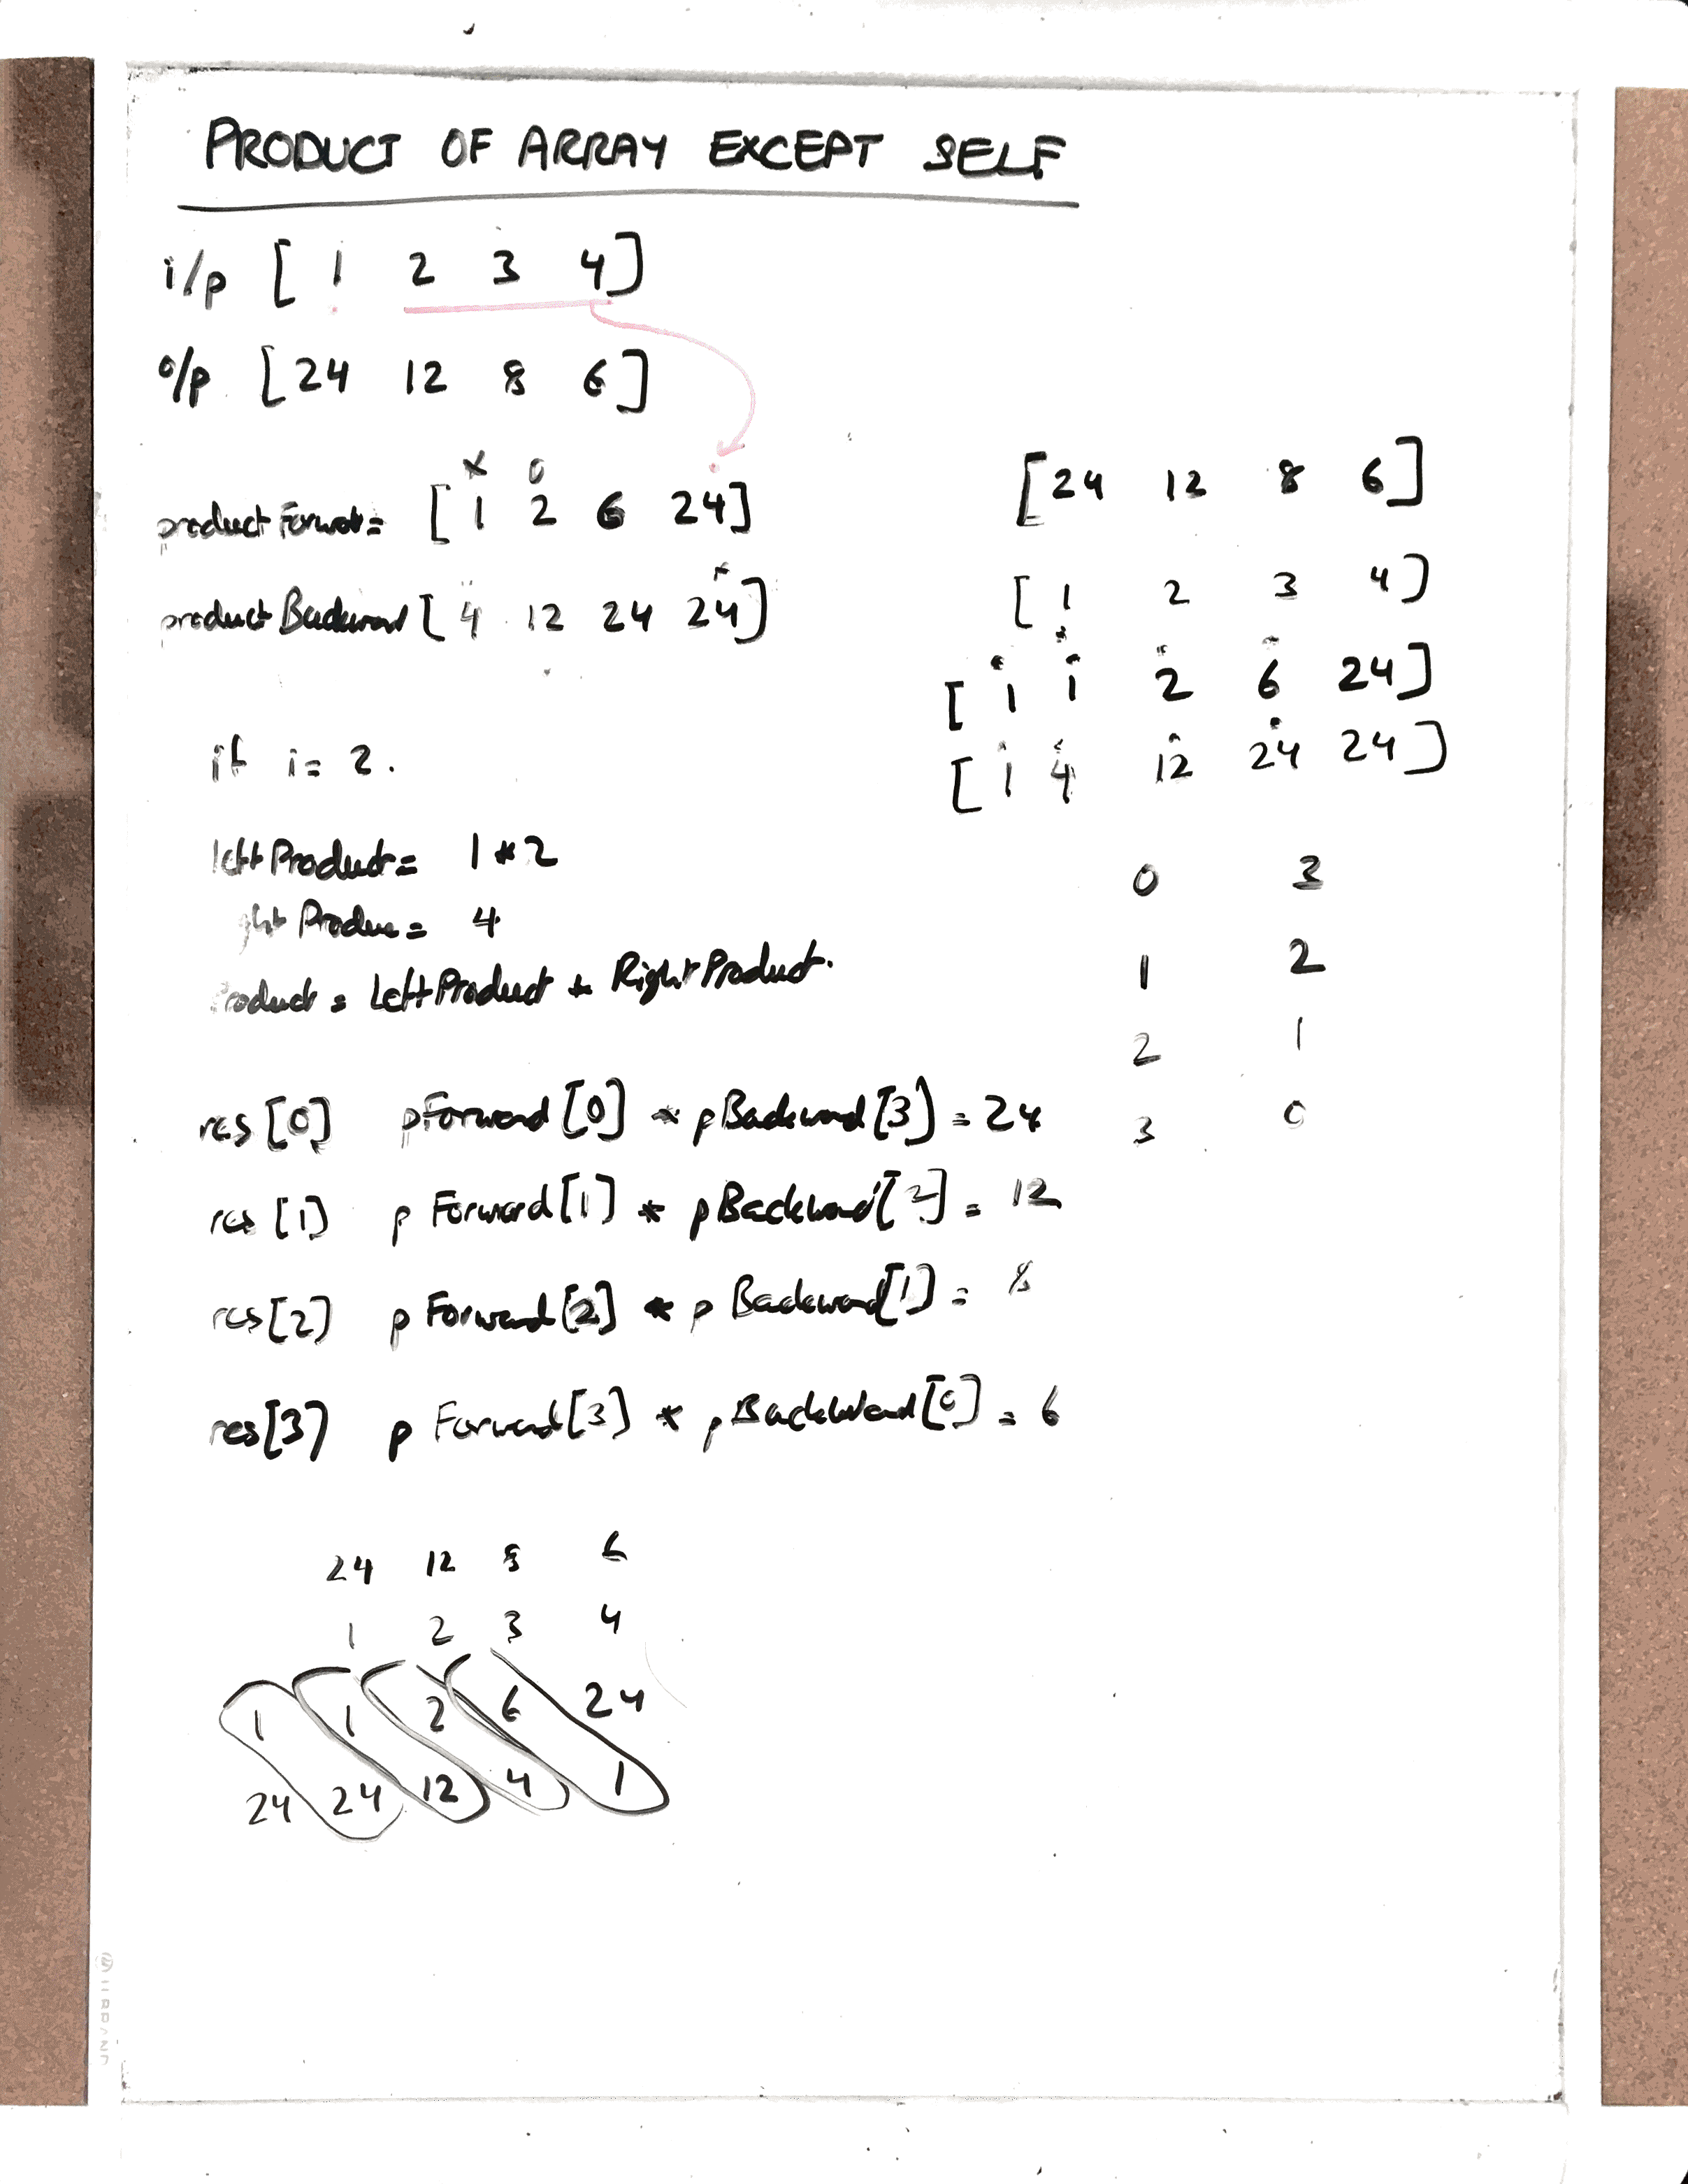 PRODUCT OF ARRAY EXCEPT SELF
i/p [ 1 2 3 4 ]
o/p [ 24 12 8 6 ]
x 0
product Forwar= [ 1 2 6 24 ]
x
product Backward [ 4 12 24 24 ]
if i= 2.
left Product = 1 * 2
ght Produc = 4
roduct = Left Product * Right Product.
res [0] pForward [0] * pBackward [3] = 24
res [1] pForward [1] * pBackward [2] = 12
res [2] pForward [2] * pBackward [1] = 8
res [3] pForward [3] * pBackward [0] = 6
24 12 8 6
1 2 3 4
1 1 2 6 24
24 24 12 4 1
[ 24 12 8 6 ]
[ 1 2 3 4 ]
[ 1 1 2 6 24 ]
[ 1 4 12 24 24 ]
0 3
1 2
2 1
3 0